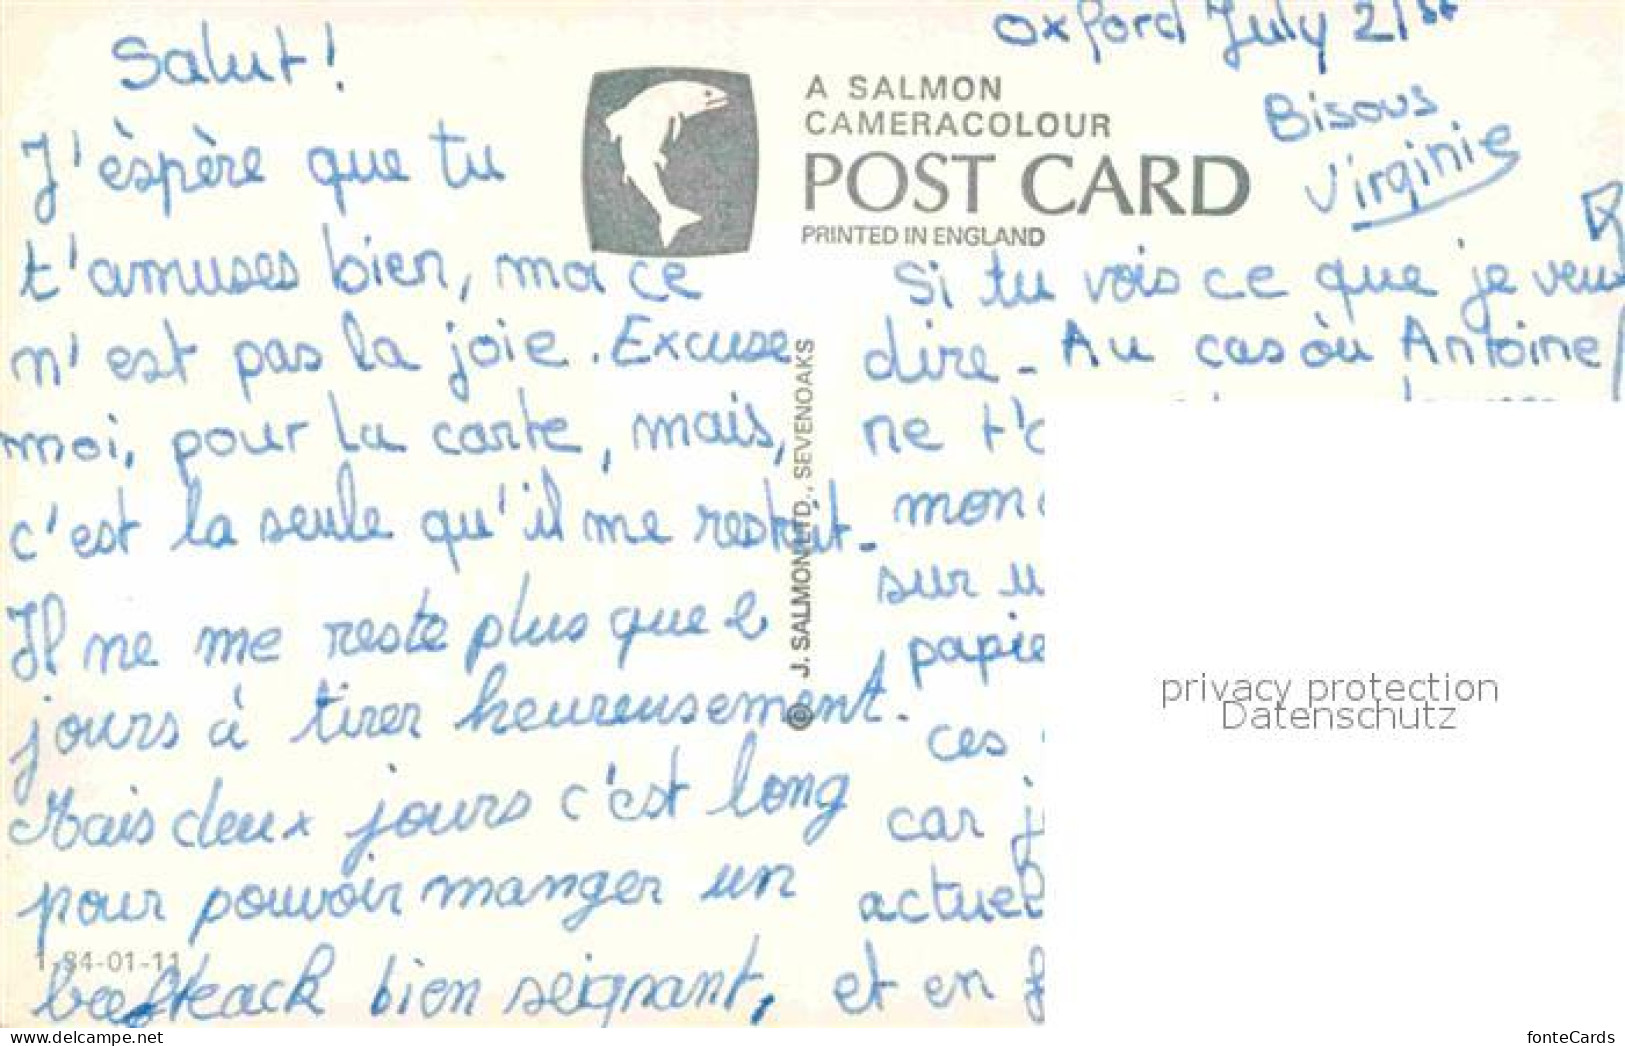 Oxford July 21st
Salut!
A SALMON
CAMERACOLOUR
POST CARD
PRINTED IN ENGLAND
Bisous
Virginie
J'éspère que tu
t'amuses bien, moi ce
n'est pas la joie. Excuse
moi, pour la carte, mais,
c'est la seule qu'il me restait.
Il ne me reste plus que 2
jours à tirer heureusement.
Mais deux jours c'est long
pour pouvoir manger un
beefteack bien seignant,
1-84-01-11
© J. SALMON LTD., SEVENOAKS
Si tu vois ce que je veux
dire. Au cas où Antoine
ne t'
mon
sur u
papie
ces
car j
actuel
et en f
privacy protection
Datenschutz
fonteCards